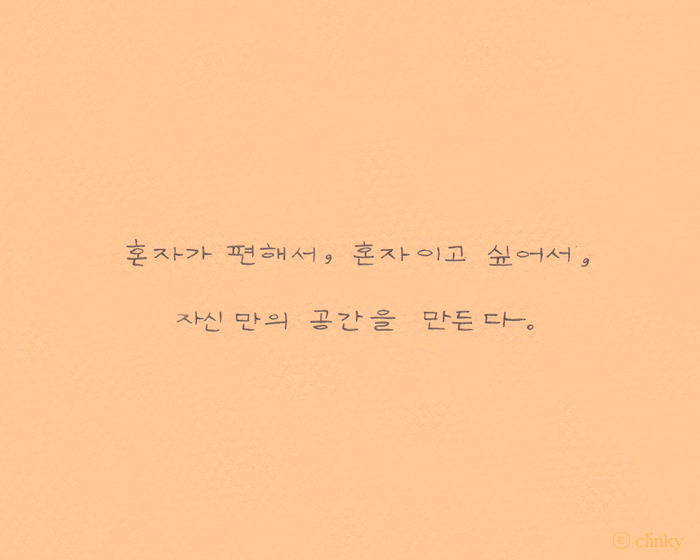 혼자가 편해서, 혼자이고 싶어서,
자신만의 공간을 만든다.
ⓒ clinky